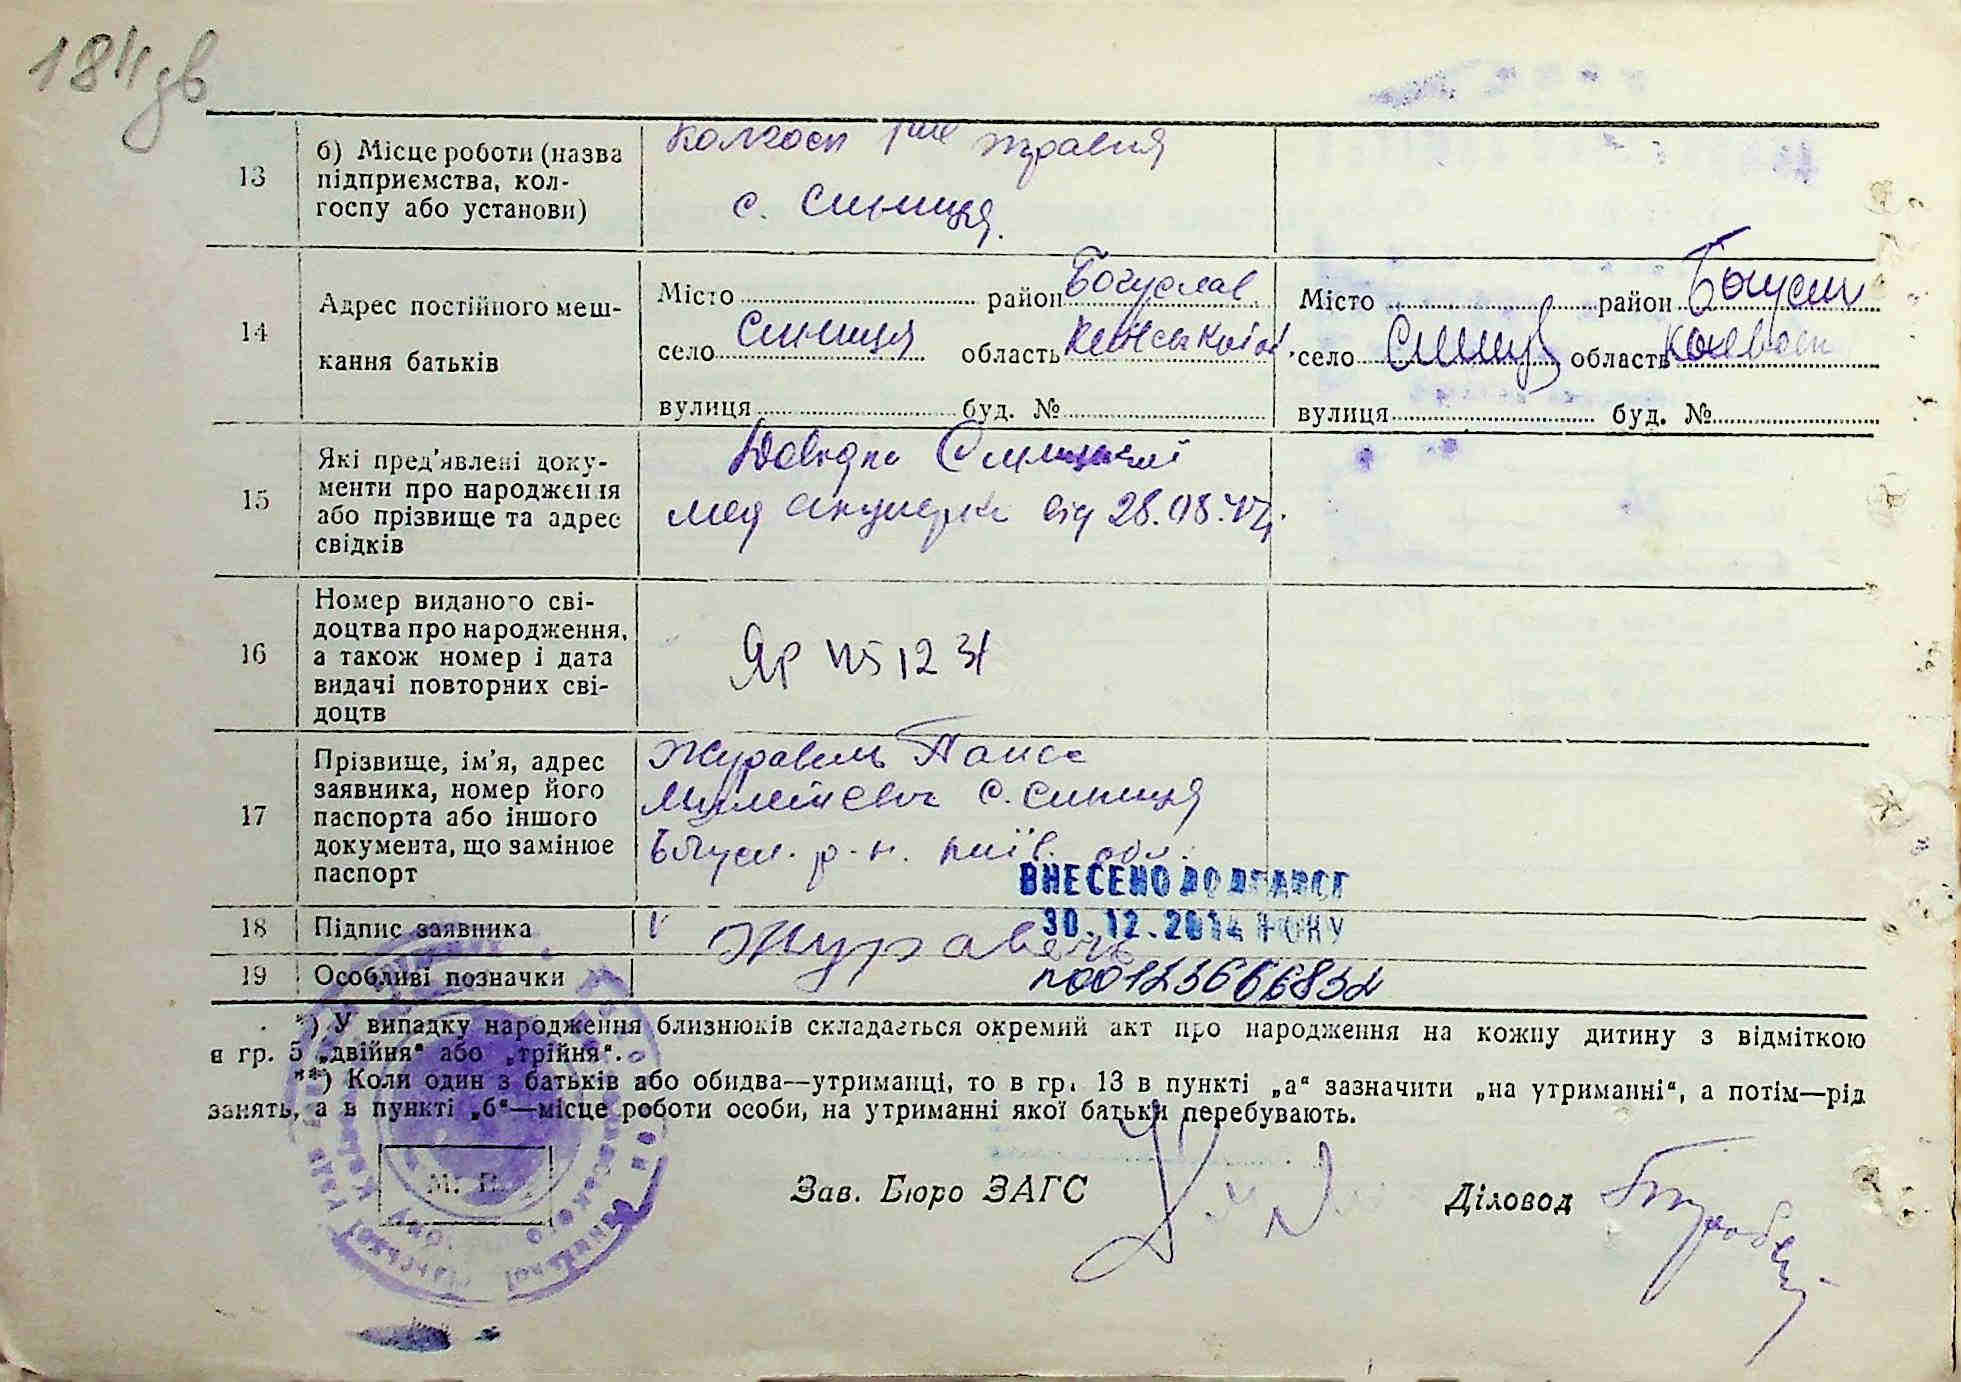 184 зв
13
б) Місце роботи (назва
підприємства, кол-
госпу або установи)
Колгосп 1ше травня
с. Синиця.
14
Адрес постійного меш-
кання батьків
Місто район Богуслав
село Синиця область
вулиця буд. №
Місто район Богусл
село Синиця область
вулиця буд. №
15
Які пред'явлені доку-
менти про народження
або прізвище та адрес
свідків
Довідка Синицької
мед від 28.08.
16
Номер виданого сві-
доцтва про народження,
а також номер і дата
видачі повторних сві-
доцтв
ЯР
17
Прізвище, ім'я, адрес
заявника, номер його
паспорта або іншого
документа, що замінює
паспорт
Журавель
с. Синиця
Богусл. р-н. Київ. обл.
ВНЕСЕНО ДО ДРАЦСГ
30.12.2014 РОКУ
18
Підпис заявника
v Журавель
19
Особливі позначки
*) У випадку народження близнюків складається окремий акт про народження на кожну дитину з відміткою
в гр. 5 „двійня“ або „трійня“.
**) Коли один з батьків або обидва—утриманці, то в гр. 13 в пункті „а“ зазначити „на утриманні“, а потім—рід
занять, а в пункті „б“—місце роботи особи, на утриманні якої батьки перебувають.
М. П.
Зав. Бюро ЗАГС
Діловод